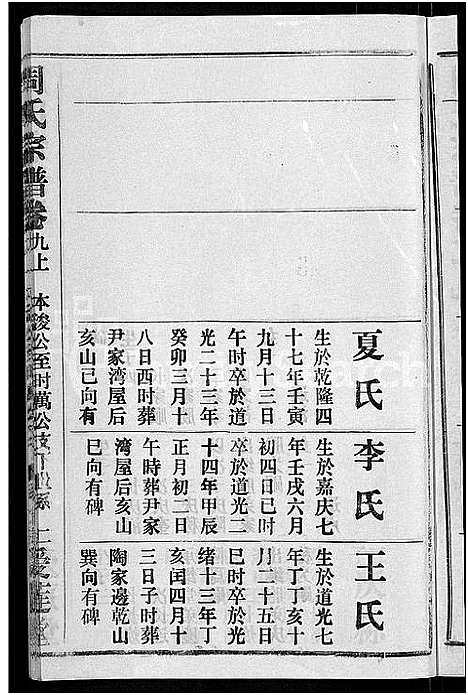 周氏宗譜卷九上 本浚公至时萬公支
夏氏
生於乾隆四
十七年壬寅
九月十三日
午时卒於道
光二十三年
癸卯三月十
八日酉时葬
尹家湾屋后
亥山巳向有
李氏
生於嘉庆七
年壬戌六月
初四日巳时
卒於道光二
十四年甲辰
正月初二日
午時葬尹家
湾屋后亥山
巳向有碑
王氏
生於道光七
年丁丁亥十
月二十五日
巳时卒於光
绪十三年丁
亥闰四月十
三日子时葬
陶家邊乾山
巽向有碑